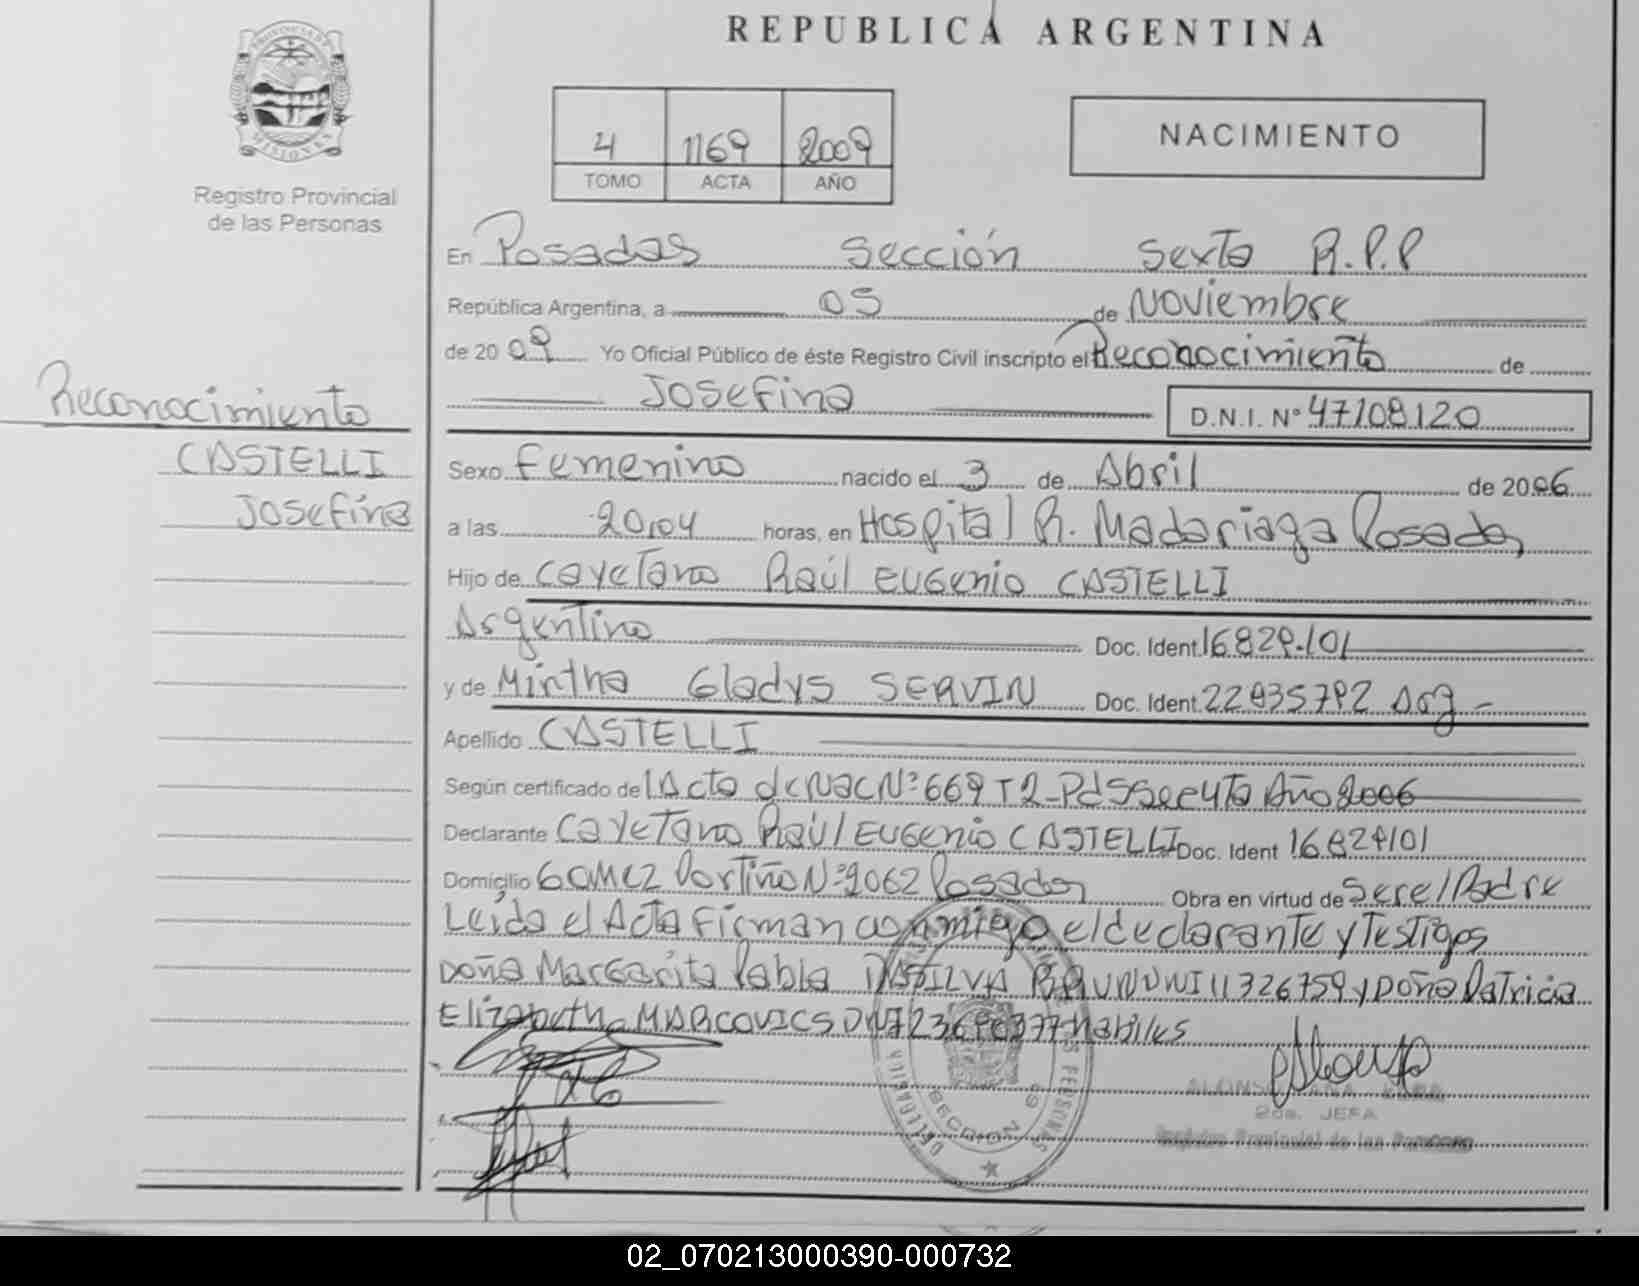 REPUBLICA ARGENTINA
PROVINCIA DE
MISIONES
Registro Provincial
de las Personas
4 1169 2009
TOMO ACTA AÑO
NACIMIENTO
En Posadas Sección Sexta R.P.P
República Argentina, a 05 de Noviembre
de 2009 Yo Oficial Público de éste Registro Civil inscripto el Reconocimiento de
Josefina D.N.I. Nº 47108120
Reconocimiento
CASTELLI
Josefina
Sexo Femenino nacido el 3 de Abril de 2006
a las 20,04 horas, en Hospital R. Madariaga Posadas
Hijo de Cayetano Raúl Eugenio CASTELLI
Argentino Doc. Ident. 16.829.101
y de Mirtha Gladys SERVIN Doc. Ident. 22935792 Arg -
Apellido CASTELLI
Según certificado de Acta de Nac Nº 669 T2 Año 2006
Declarante Cayetano Raúl Eugenio CASTELLI Doc. Ident 16829101
Domicilio Gomez Portiño Nº 2062 Posadas Obra en virtud de Ser el Padre
Leída el Acta Firman conmigo el declarante y Testigos
Doña Margarita Pabla DASILVA DNI 11326759 y Doña Patricia
Elizabeth MARCOVICS DNI habiles
ALONSO ANA
2da. JEFA
Registro Provincial de las Personas
SECCION 6
02_070213000390-000732